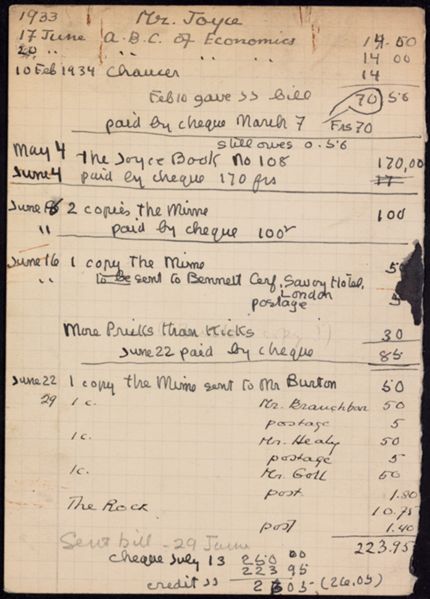 1933 Mr. Joyce
17 June A.B.C. of Economics 14.50
20 " " " " 14 00
10 Feb 1934 Chaucer 14
Feb 10 gave JJ bill 70 5.6
paid by cheque March 7 Frs 70
still owes 0.56
May 4 The Joyce Book No 108 170,00
June 4 paid by cheque 170 frs
June 2 copies the Mime 100
" paid by cheque 100
June 16 1 copy the Mime 50
" to be sent to Bennett Cerf, Savoy Hotel,
London
postage 5
More Pricks than Kicks 30
June 22 paid by cheque 85
June 22 1 copy the Mime sent to Mr Burton 50
29 1 c. Mr. Brauchbar 50
postage 5
1 c. Mr. Healy 50
postage 5
1c. Mr. Goll 50
post. 1.80
The Rock 10.75
post 1.40
223.95
Sent bill - 29 June
cheque July 13 250 00
223 95
credit JJ 2605 (26.05)